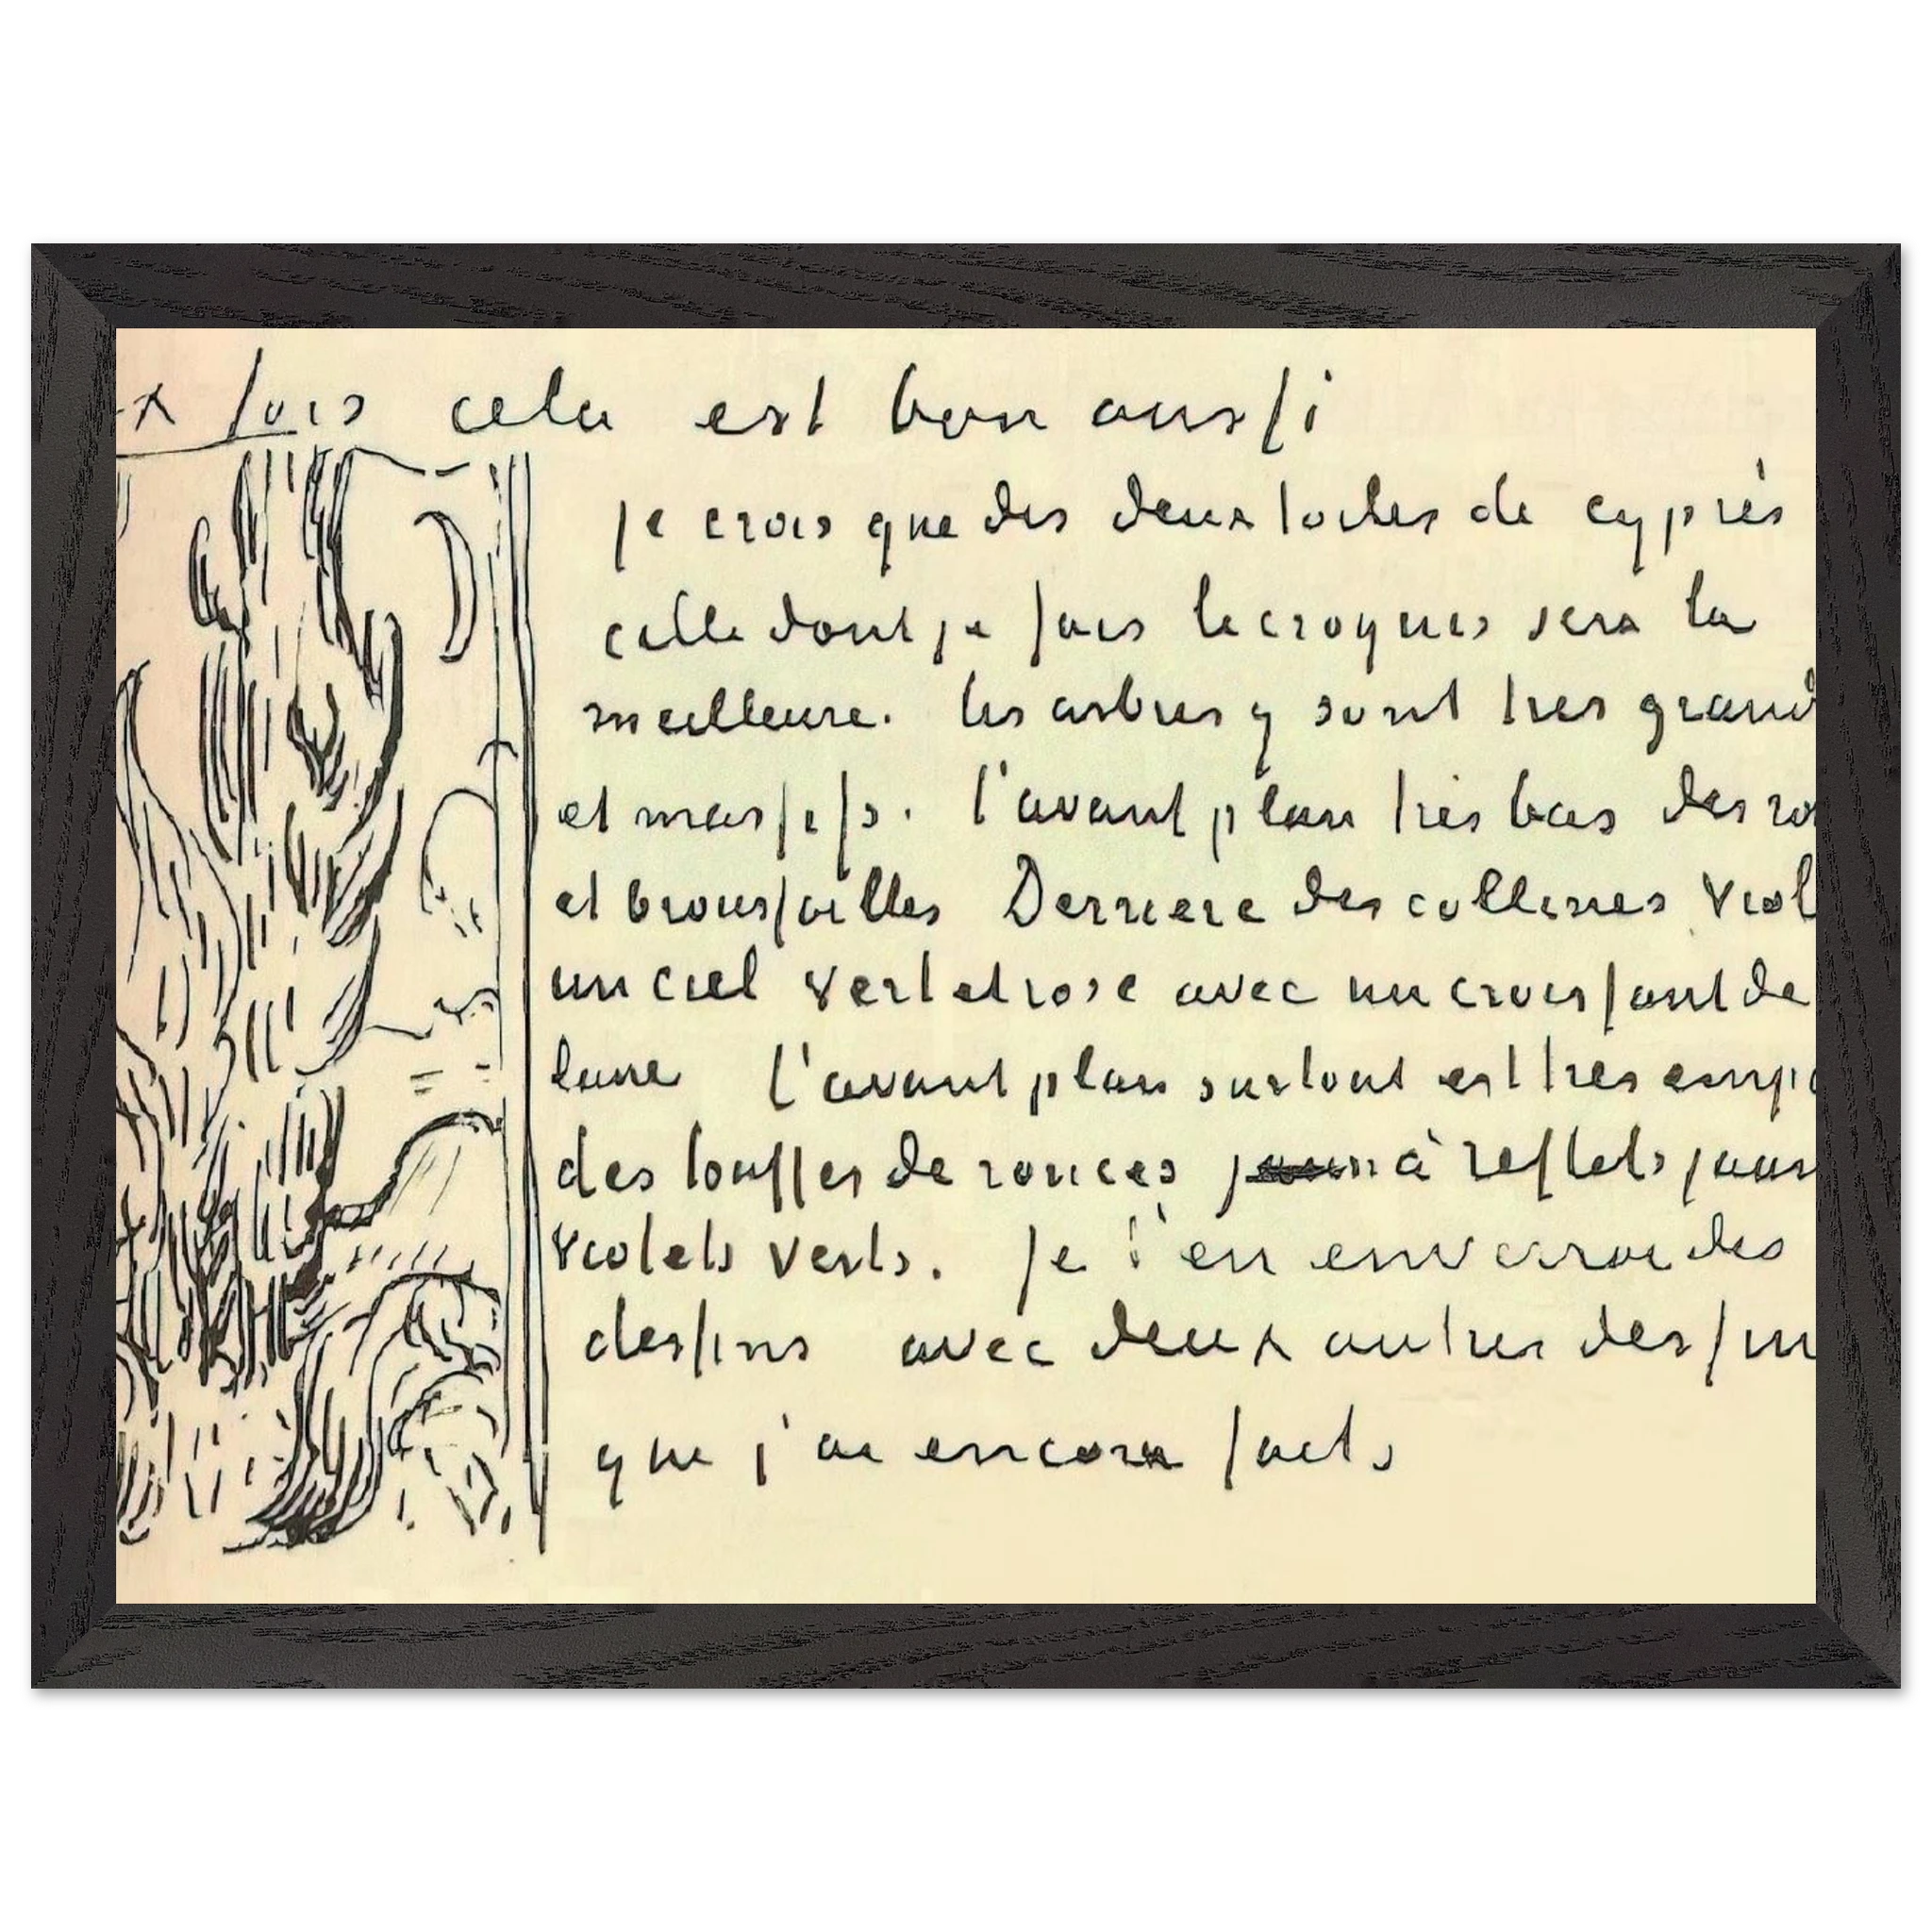 x fois cela est bon aussi
je crois que des deux toiles de cyprès
celle dont je fais le croquis sera la
meilleure. les arbres y sont tres grand
et massifs. l'avant plan très bas des ro
et broussailles Derriere des collines viol
un ciel vert et rose avec un croissant de
lune l'avant plan surtout est tres empa
des touffes de ronces à reflets jaun
violets verts. Je t'en enverrai des
dessins avec deux autres dessin
que j'ai encore faits